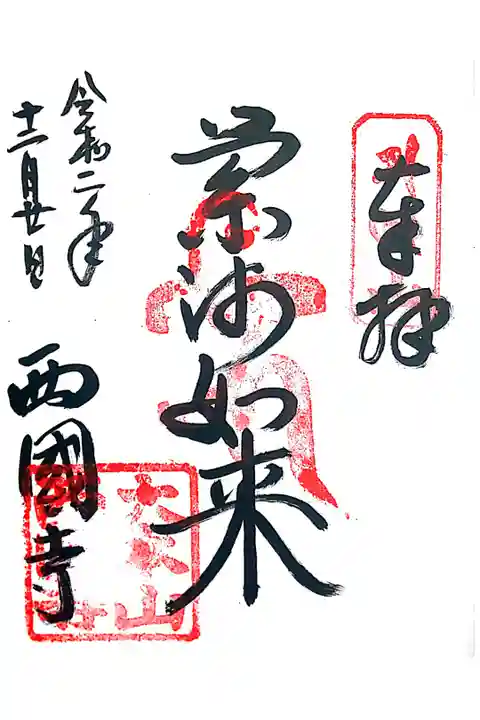 奉拝
薬師如来
令和二年
十二月廿日
西國寺